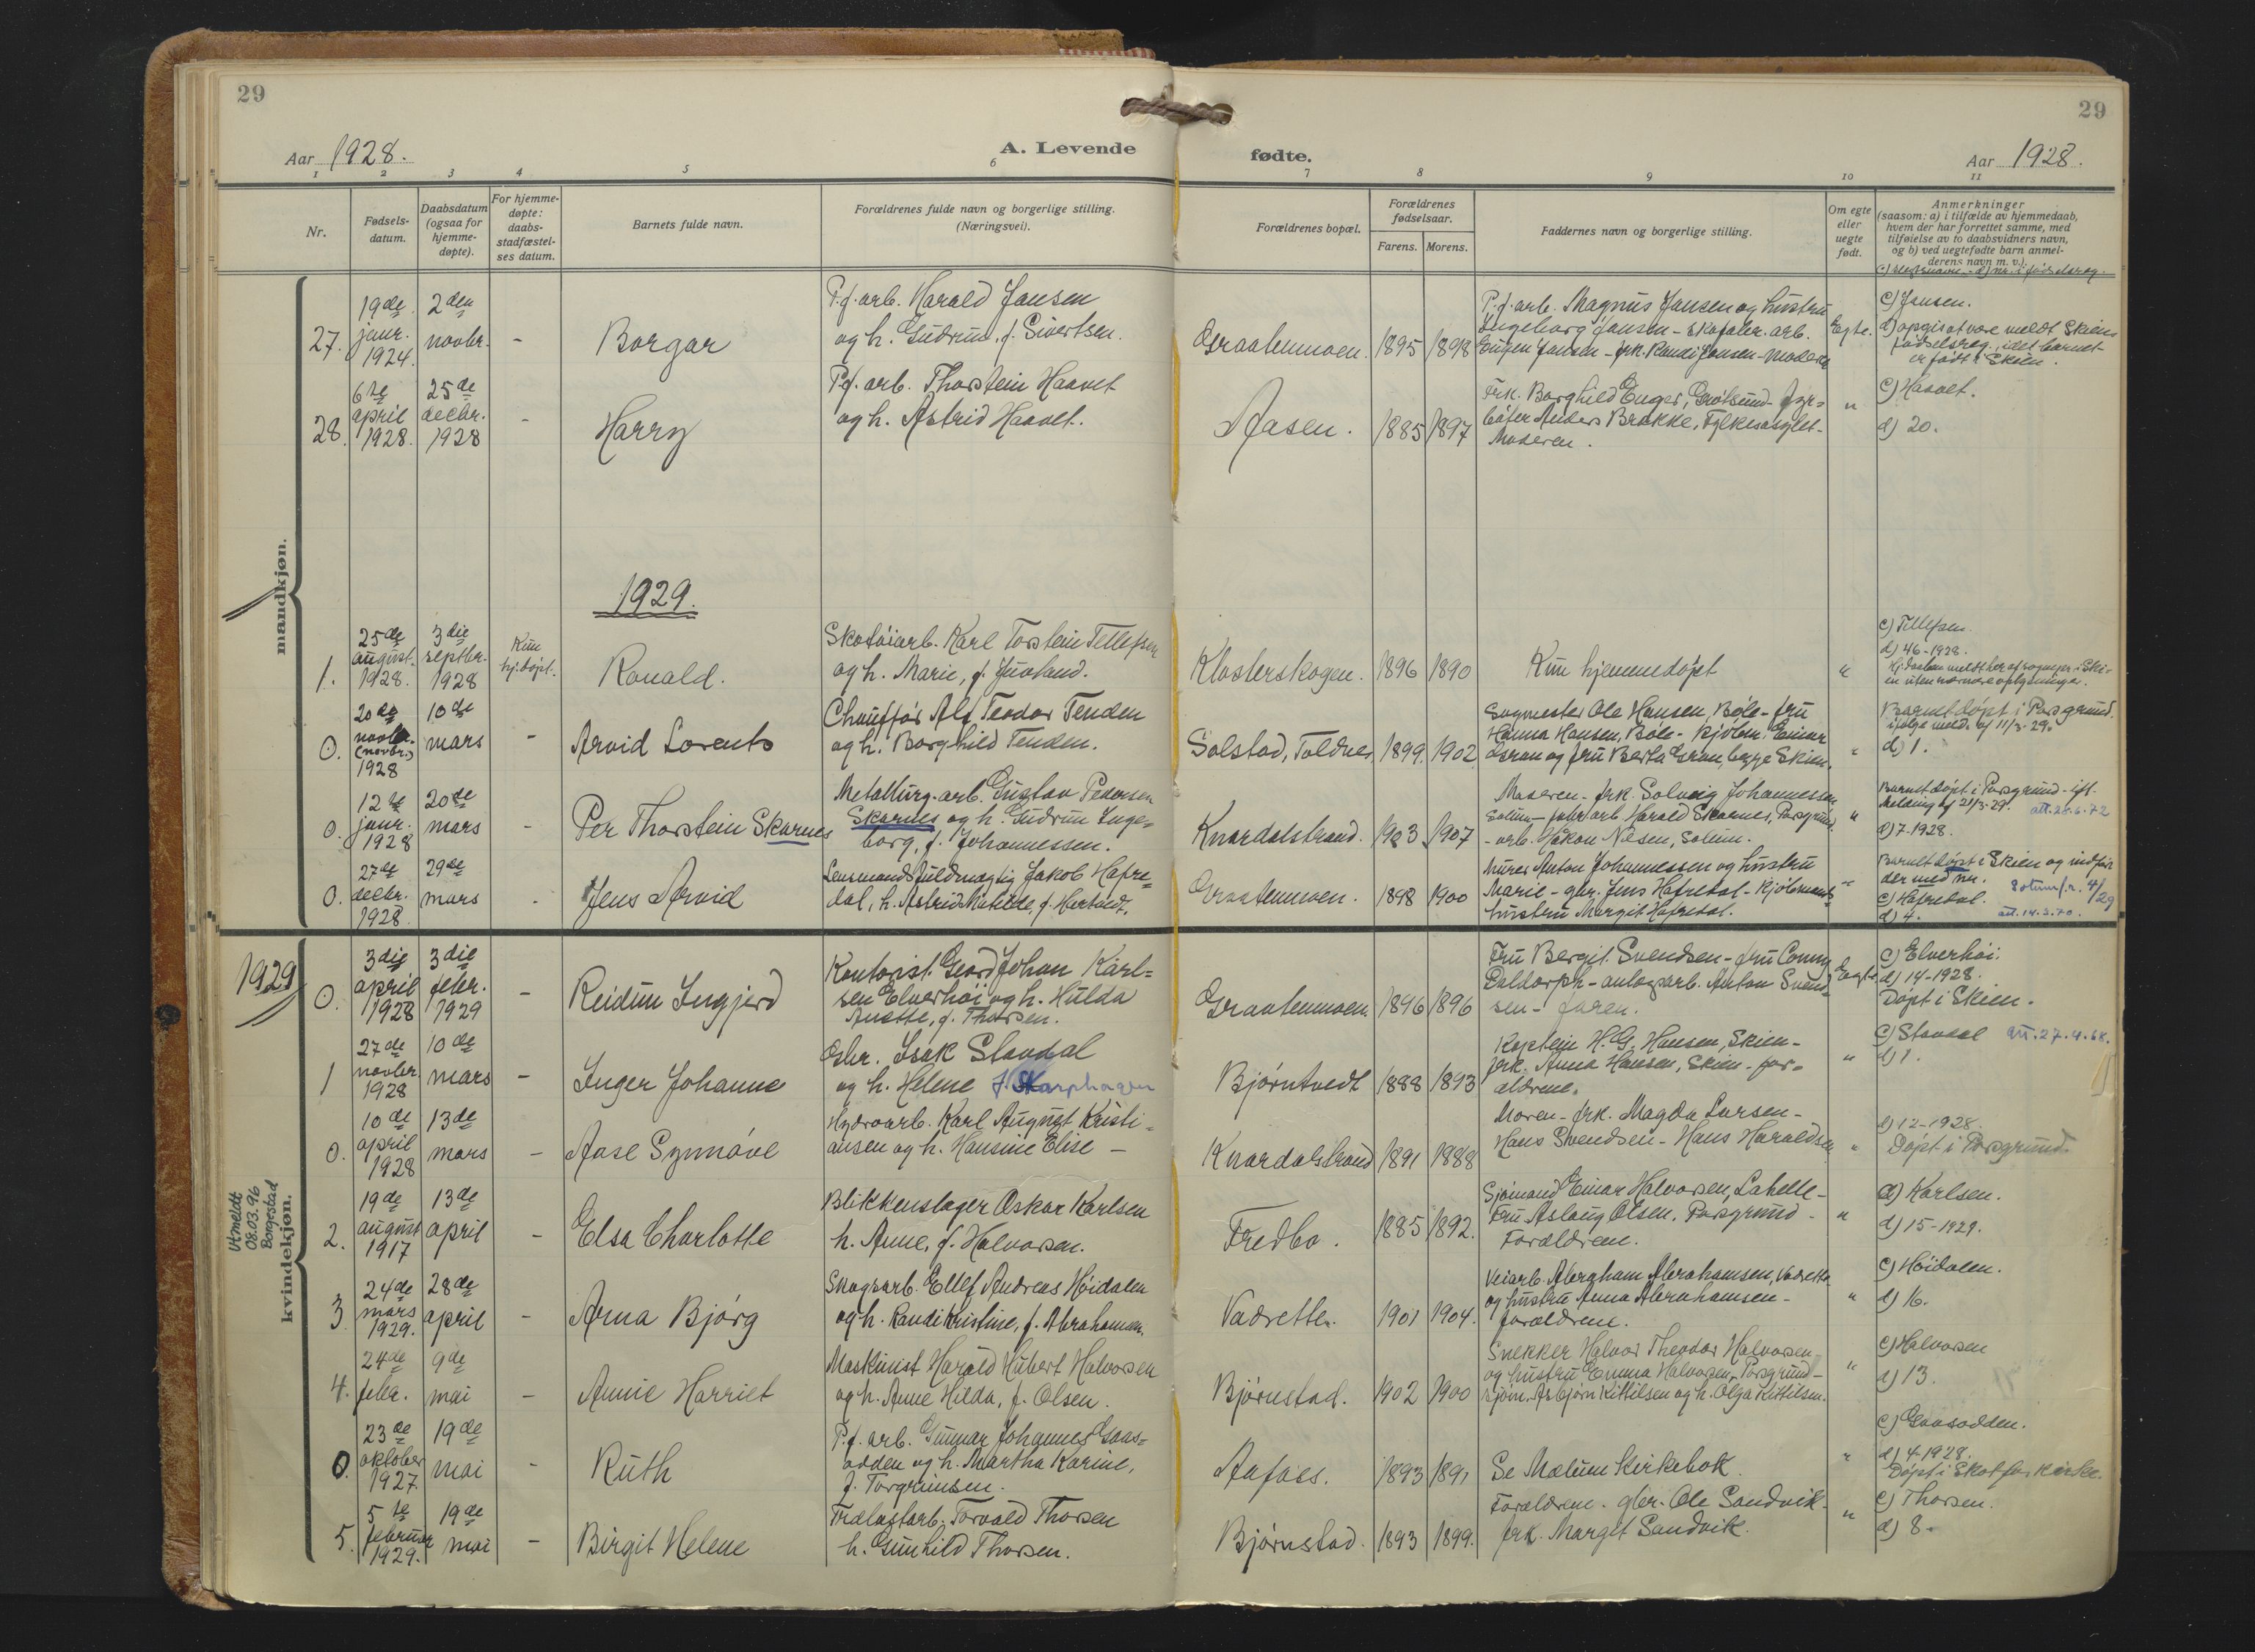 29
Aar 1928.
A. Levende
1 2 3 4 5 6
Nr.
Fødsels-
datum.
Daabsdatum
(ogsaa for
hjemme-
døpte).
For hjemme-
døpte:
daabs-
stadfæstel-
ses datum.
Barnets fulde navn.
Forældrenes fulde navn og borgerlige stilling.
(Næringsvei).
mandkjøn.
27.
19de
janr.
1924.
2den
novbr.
-
Borgar
P.f.arb. Harald Jansen
og h. Gudrun, f. Sivertsen.
28.
6te
april
1928.
25de
decbr.
1928
-
Harry
P.f. arb. Thorstein Haavet
og h. Astrid Haavet.
1929.
1.
25de
august.
1928.
3die
septbr.
1928
Kun
hj.døpt.
Ronald.
Skotøiarb. Karl Torstein Tellefsen
og h. Marie, f.
0.
20de
novbr.
(novbr.)
1928
10de
mars
-
Arvid Lorents
Chauffør Alf Teodor Tenden
og h. Borghild Tenden.
0.
12te
janr.
1928
20de
mars
-
Per Thorstein Skarnes
Metallurg.arb. Gustav Pedersen
Skarnes og h. Gudrun Inge=
borg, f. Johannessen.
0.
27de
decbr.
1928
29de
mars
-
Jens Arvid
Lensmandsfuldmægtig Jakob Hafre=
dal, h. Astrid Matilde, f.
1929
kvindekjøn.
Utmeldt
08.03.96
Borgestad
0.
3die
april
1928
3die
febr.
1929
-
Reidun Ingjerd
Kontorist Johan Karl=
sen Elverhøi og h. Hulda
Anette, f. Thorsen.
1
27de
novbr
1928
10de
mars
-
Inger Johanne
Gbr. Isak Slaudal
og h. Helene f. Skarphagen
0.
10de
april
1928
13de
mars
-
Aase Synnøve
Hydroarb. Karl August Kristi=
ansen og h. Hansine Elise -
2.
19de
august
1917
13de
april
-
Elsa Charlotte
Blikkenslager Oskar Karlsen
h. Anne, f. Halvorsen.
3
24de
mars
1929.
28de
april
-
Arna Bjørg
Skogsarb. Ellef Andreas Høidalen
og h. Randi Kristine, f. Abrahamsen.
4.
24de
febr.
9de
mai
-
Annie Harriet
Maskinist Harald Hubert Halvorsen
og h. Anne Hilda, f. Olsen.
0.
23de
oktober
1927.
19de
mai
-
Ruth
P.f. arb. Gunnar Johannes Gaas=
odden og h. Martha Karine,
f. Torgrimsen.
5.
5te
februar
1929.
19de
mai
-
Birgit Helene
Trælastarb. Torvald Thorsen
h. Gunhild Thorsen.
29
fødte.
Aar 1928.
7 8 9 10 11
Forældrenes bopæl.
Forældrenes
fødselsaar.
Farens. Morens.
Faddernes navn og borgerlige stilling.
Om egte
eller
uegte
født.
Anmerkninger
(saasom: a) i tilfælde av hjemmedaab,
hvem der har forrettet samme, med
tilføielse av to daabsvidners navn,
og b) ved uegtefødte barn anmel-
derens navn m. v.).
Graatenmoen. 1895 1898
P.f.arb. Magnus Jansen og hustru
Ingeborg Jansen - skofabr. arb.
Eugen Jansen - frk. Randi Jansen - moderen
Egte.
c) Jansen.
d) opgis at være meldt Skiens
fødselsreg., idet barnet
er født i Skien.
Aasen. 1885 1897
Frk. Borghild Enger, - fyr=
bøter Anders Brekke,
Moderen.
"
c) Haavet.
d) 20.
Klosterskogen. 1896 1890
Kun hjemmedøpt
"
c) Tellefsen.
d) 46-1928.
Hj.daaben meldt her af sognepr. i Ski-
en uten nærmere oplysninger.
Solstad, Toldnes 1899. 1902.
Sagmester Ole Hansen, Bøle - fru
Hanna Hansen, Bøle - Einar
Gran og fru Berta Gran, begge Skien.
"
Barnet døpt i Porsgrund
ifølge meld. af 11/3-29.
d) 1.
Knardalstrand. 1903 1907
Moderen - frk. Solveig Johannessen
Solum - fabr.arb. Harald Skarnes, Porsgrund
- arb. Håkon Nilsen, Solum.
"
Barnet døpt i Porsgrund - ifl.
Melding af 21/3-29. att. 28.6.72
d) 7-1928.
Graatenmoen. 1898 1900
Murer Anton Johannessen og hustru
Marie - gbr. Jens Hafredal -
hustru Margit Hafredal.
"
Barnet døpt i Skien og indføres
der med nr. Solum f.r. 4/29
c) Hafredal.
d) 4. att. 14.3.70.
Graatenmoen. 1896 1896
Fru Bergit Svendsen - fru Conny
Daldorph - anlegsarb. Anton Svend=
sen - faren.
Egte
c) Elverhøi.
d) 14-1928.
Døpt i Skien.
Bjørntvedt 1888 1893
Kaptein H. G. Hansen, Skien -
frk. Anna Hansen, Skien - for=
ældrene.
"
c) Slaudal att. 27.4.68.
d) 1.
Knardalstrand 1891 1888
Moren - frk. Magda Larsen -
Hans Svendsen - Hans Haraldsen
"
d) 12-1928.
Døpt i Porsgrund.
Fredbo. 1885 1892.
Sjømand Einar Halvorsen, Lahelle -
Fru Aslaug Olsen, Porsgrund -
Forældrene.
"
c) Karlsen.
d) 15-1929.
Vadrette. 1901 1904.
Veiarb. Abraham Abrahamsen, Vadrette
og hustru Anna Abrahamsen -
forældrene.
"
c) Høidalen.
d) 16.
Bjørnstad. 1902 1900
Snekker Halvor Theodor Halvorsen
og hustru Emma Halvorsen, Porsgrund -
sjøm. Asbjørn Kittilsen og h. Olga Kittilsen.
"
c) Halvorsen
d) 13.
Aafoss. 1893 1891
Se Mælum Kirkebok.
"
c) Gaasodden.
d) 4-1928.
Døpt i Skotfos kirke.
Bjørnstad. 1893 1899.
Forældrene - gbr. Ole Sandvik -
frk. Margit Sandvik.
"
c) Thorsen.
d) 8.